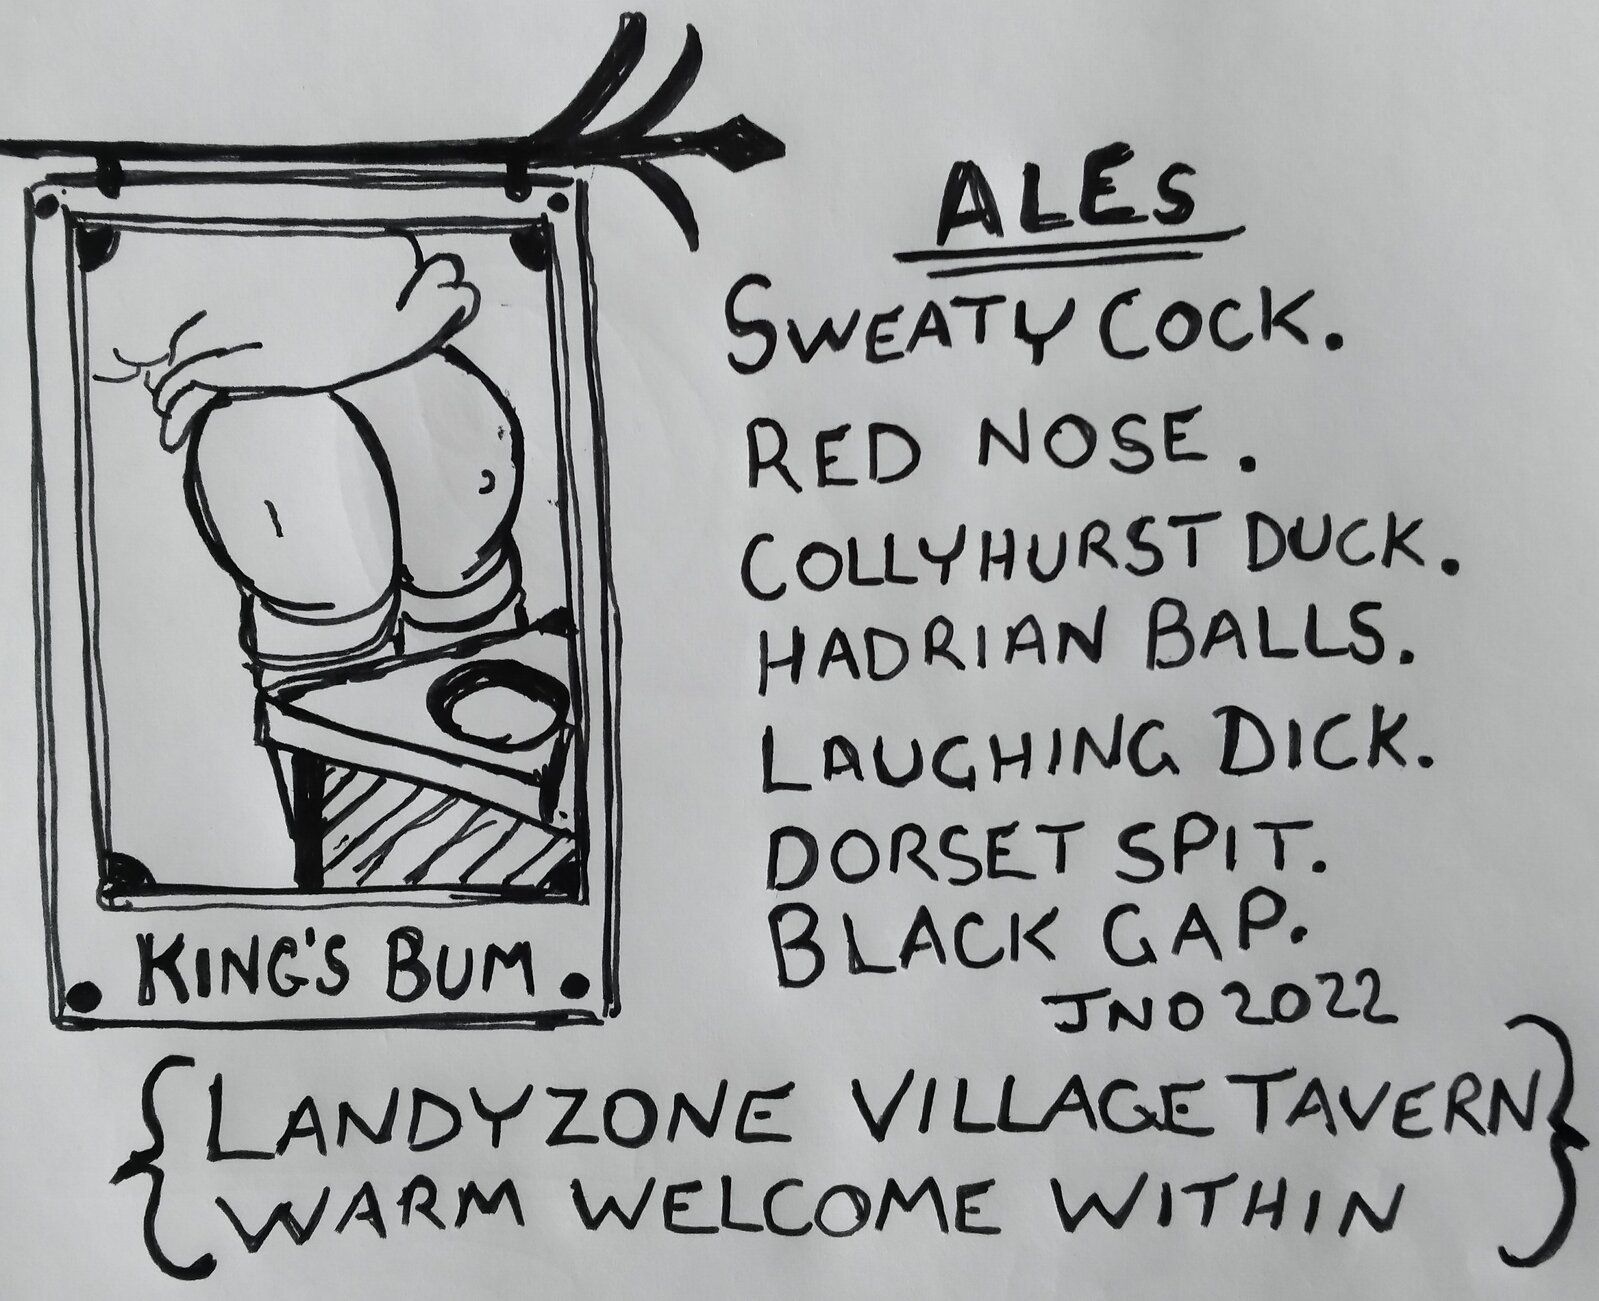 ALES
SWEATY COCK.
RED NOSE.
COLLYHURST DUCK.
HADRIAN BALLS.
LAUGHING DICK.
DORSET SPIT.
BLACK GAP.
JNO 2022
KING'S BUM
LANDYZONE VILLAGE TAVERN
WARM WELCOME WITHIN